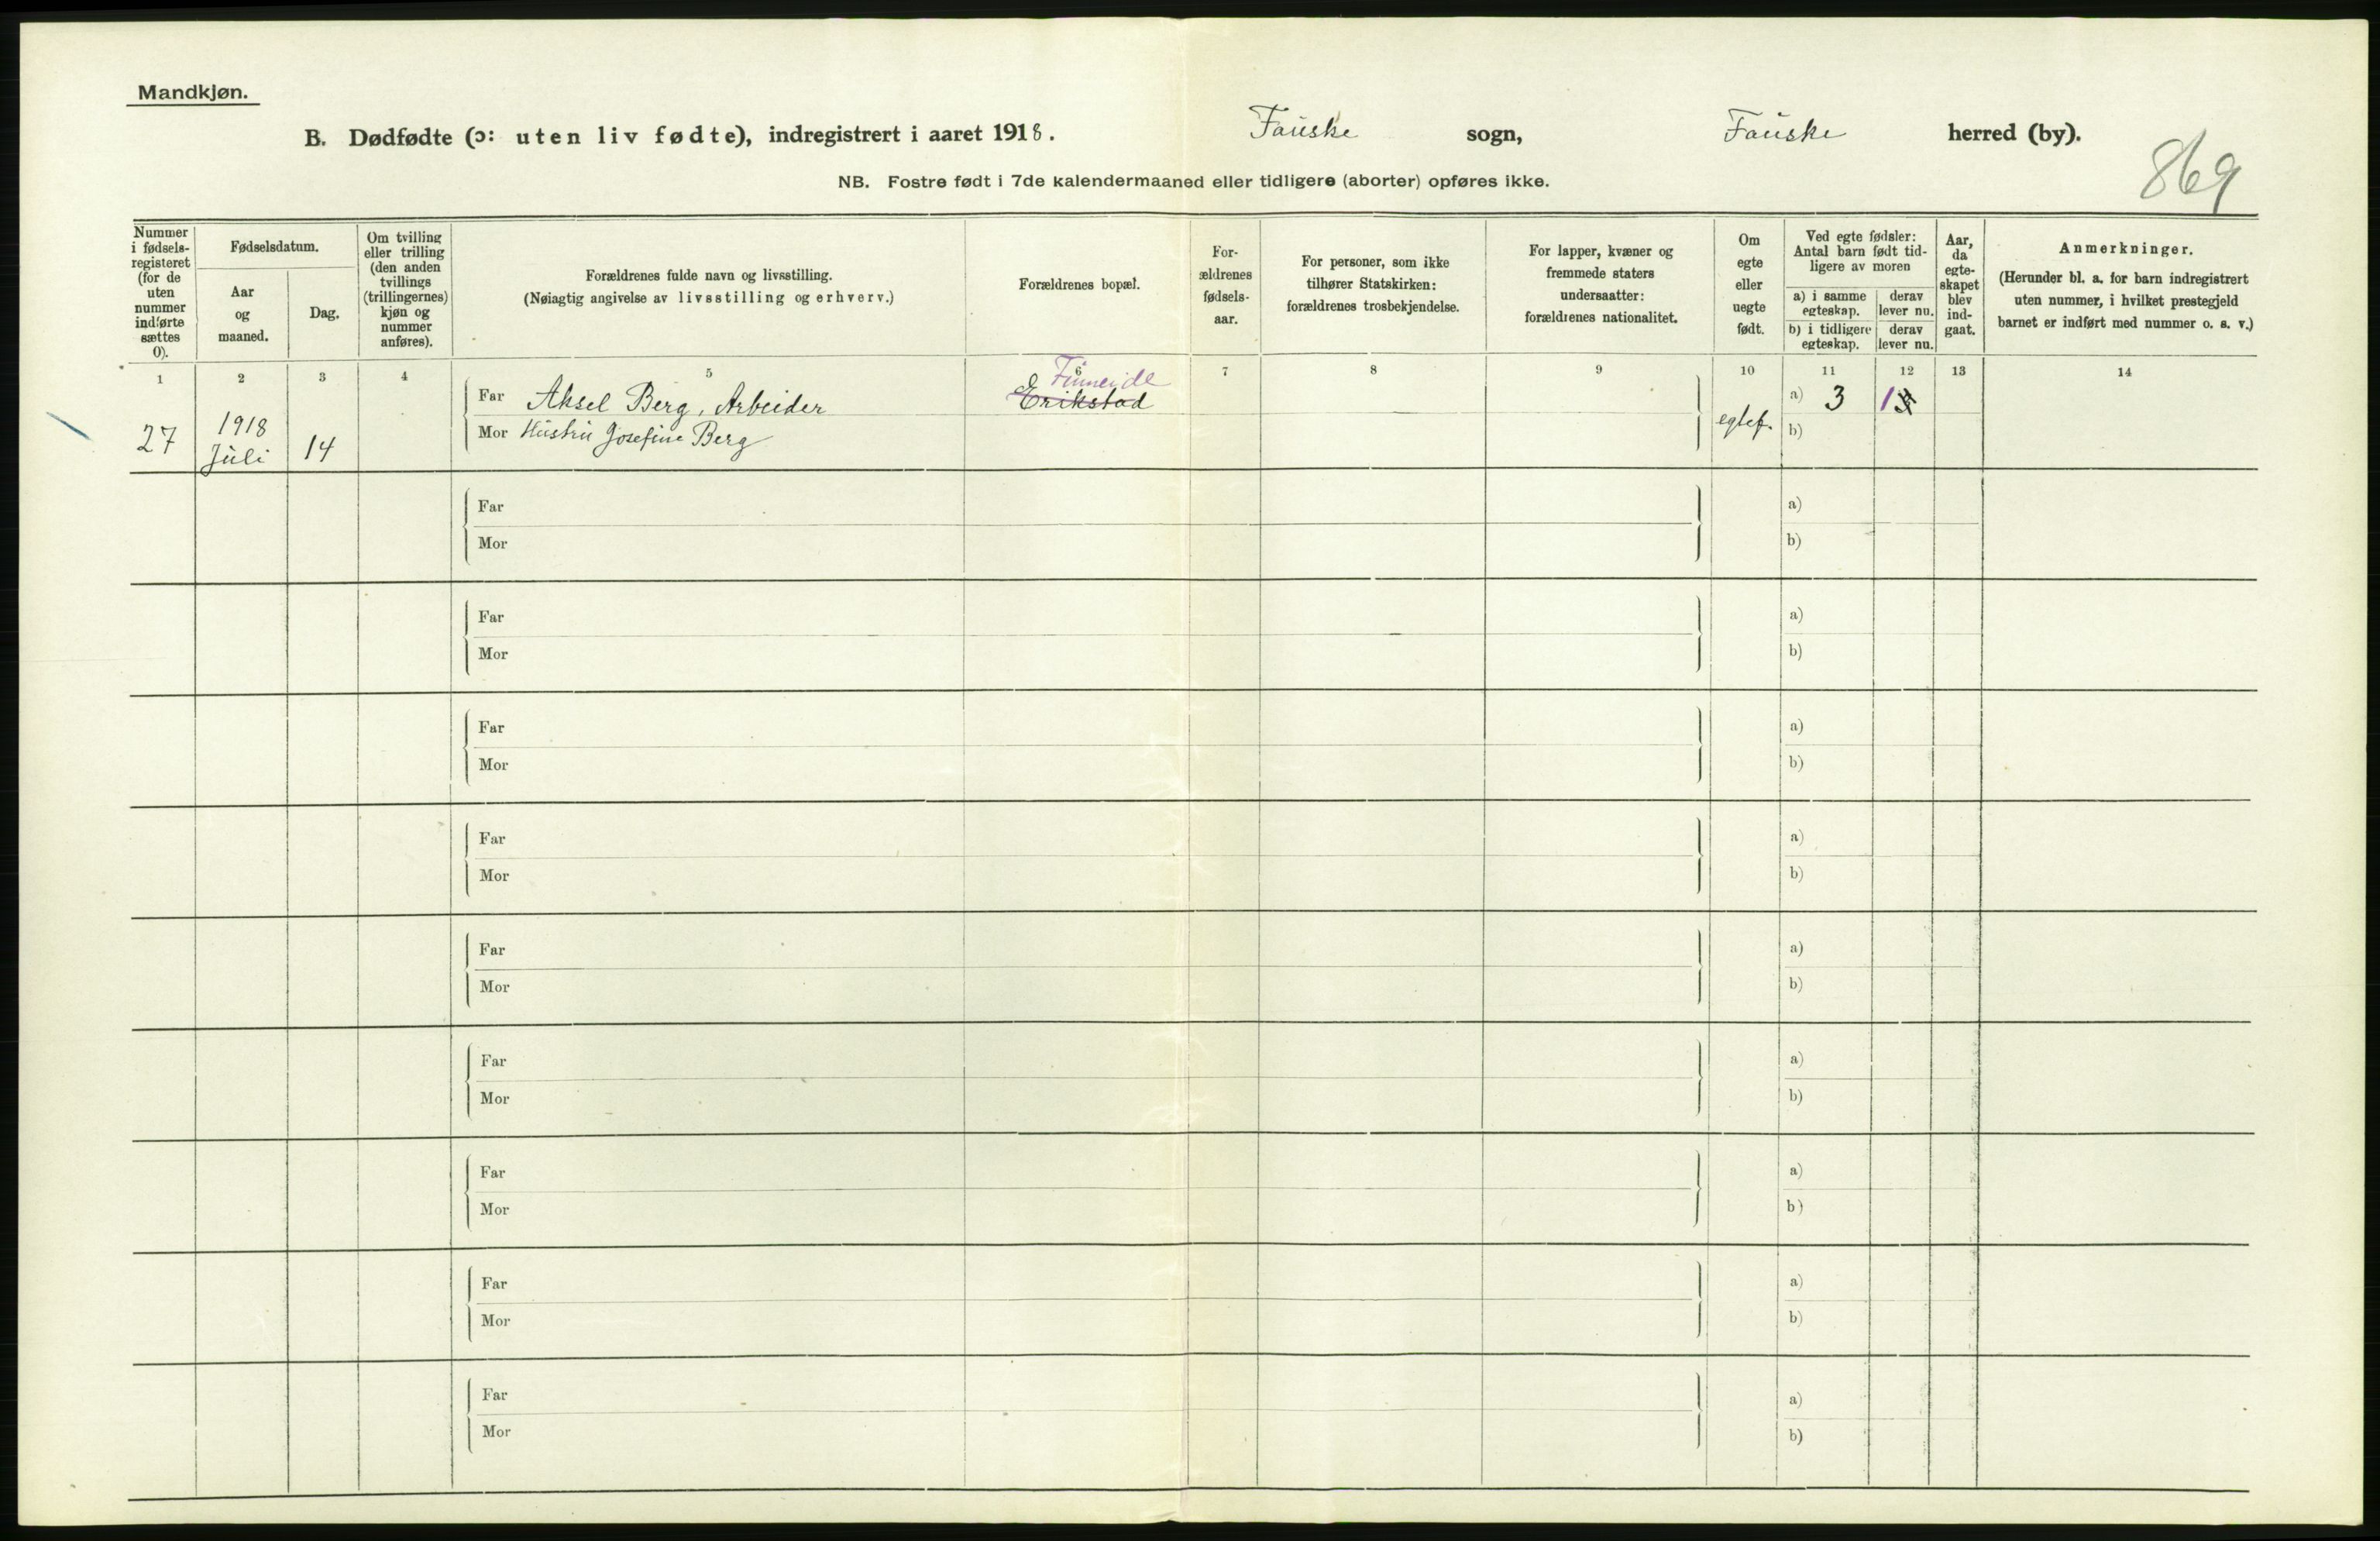 Mandkjøn.
B. Dødfødte (ɔ: uten liv fødte), indregistrert i aaret 1918. Fauske sogn, Fauske herred (by).
869
NB. Fostre født i 7de kalendermaaned eller tidligere (aborter) opføres ikke.
Nummer
i fødsels-
registeret
(for de
uten
nummer
indførte
sættes
0).
Fødselsdatum.
Aar
og
maaned.
Dag.
Om tvilling
eller trilling
(den anden
tvillings
(trillingernes)
kjøn og
nummer
anføres).
Forældrenes fulde navn og livsstilling.
(Nøiagtig angivelse av livsstilling og erhverv.)
Forældrenes bopæl.
For-
ældrenes
fødsels-
aar.
For personer, som ikke
tilhører Statskirken:
forældrenes trosbekjendelse.
For lapper, kvæner og
fremmede staters
undersaatter:
forældrenes nationalitet.
Om
egte
eller
uegte
født.
Ved egte fødsler:
Antal barn født tid-
ligere av moren
a) i samme
egteskap.
derav
lever nu.
b) i tidligere
egteskap.
derav
lever nu.
Aar,
da
egte-
skapet
blev
ind-
gaat.
Anmerkninger.
(Herunder bl. a. for barn indregistrert
uten nummer, i hvilket prestegjeld
barnet er indført med nummer o. s. v.)
1 2 3 4 5 6 7 8 9 10 11 12 13 14
27
1918
Juli
14
Far Aksel Berg, Arbeider
Mor Hustru Josefine Berg
Finneide
Erikstad
egtef.
a) 3 1
b)
Far a)
Mor b)
Far a)
Mor b)
Far a)
Mor b)
Far a)
Mor b)
Far a)
Mor b)
Far a)
Mor b)
Far a)
Mor b)
Far a)
Mor b)
Far a)
Mor b)